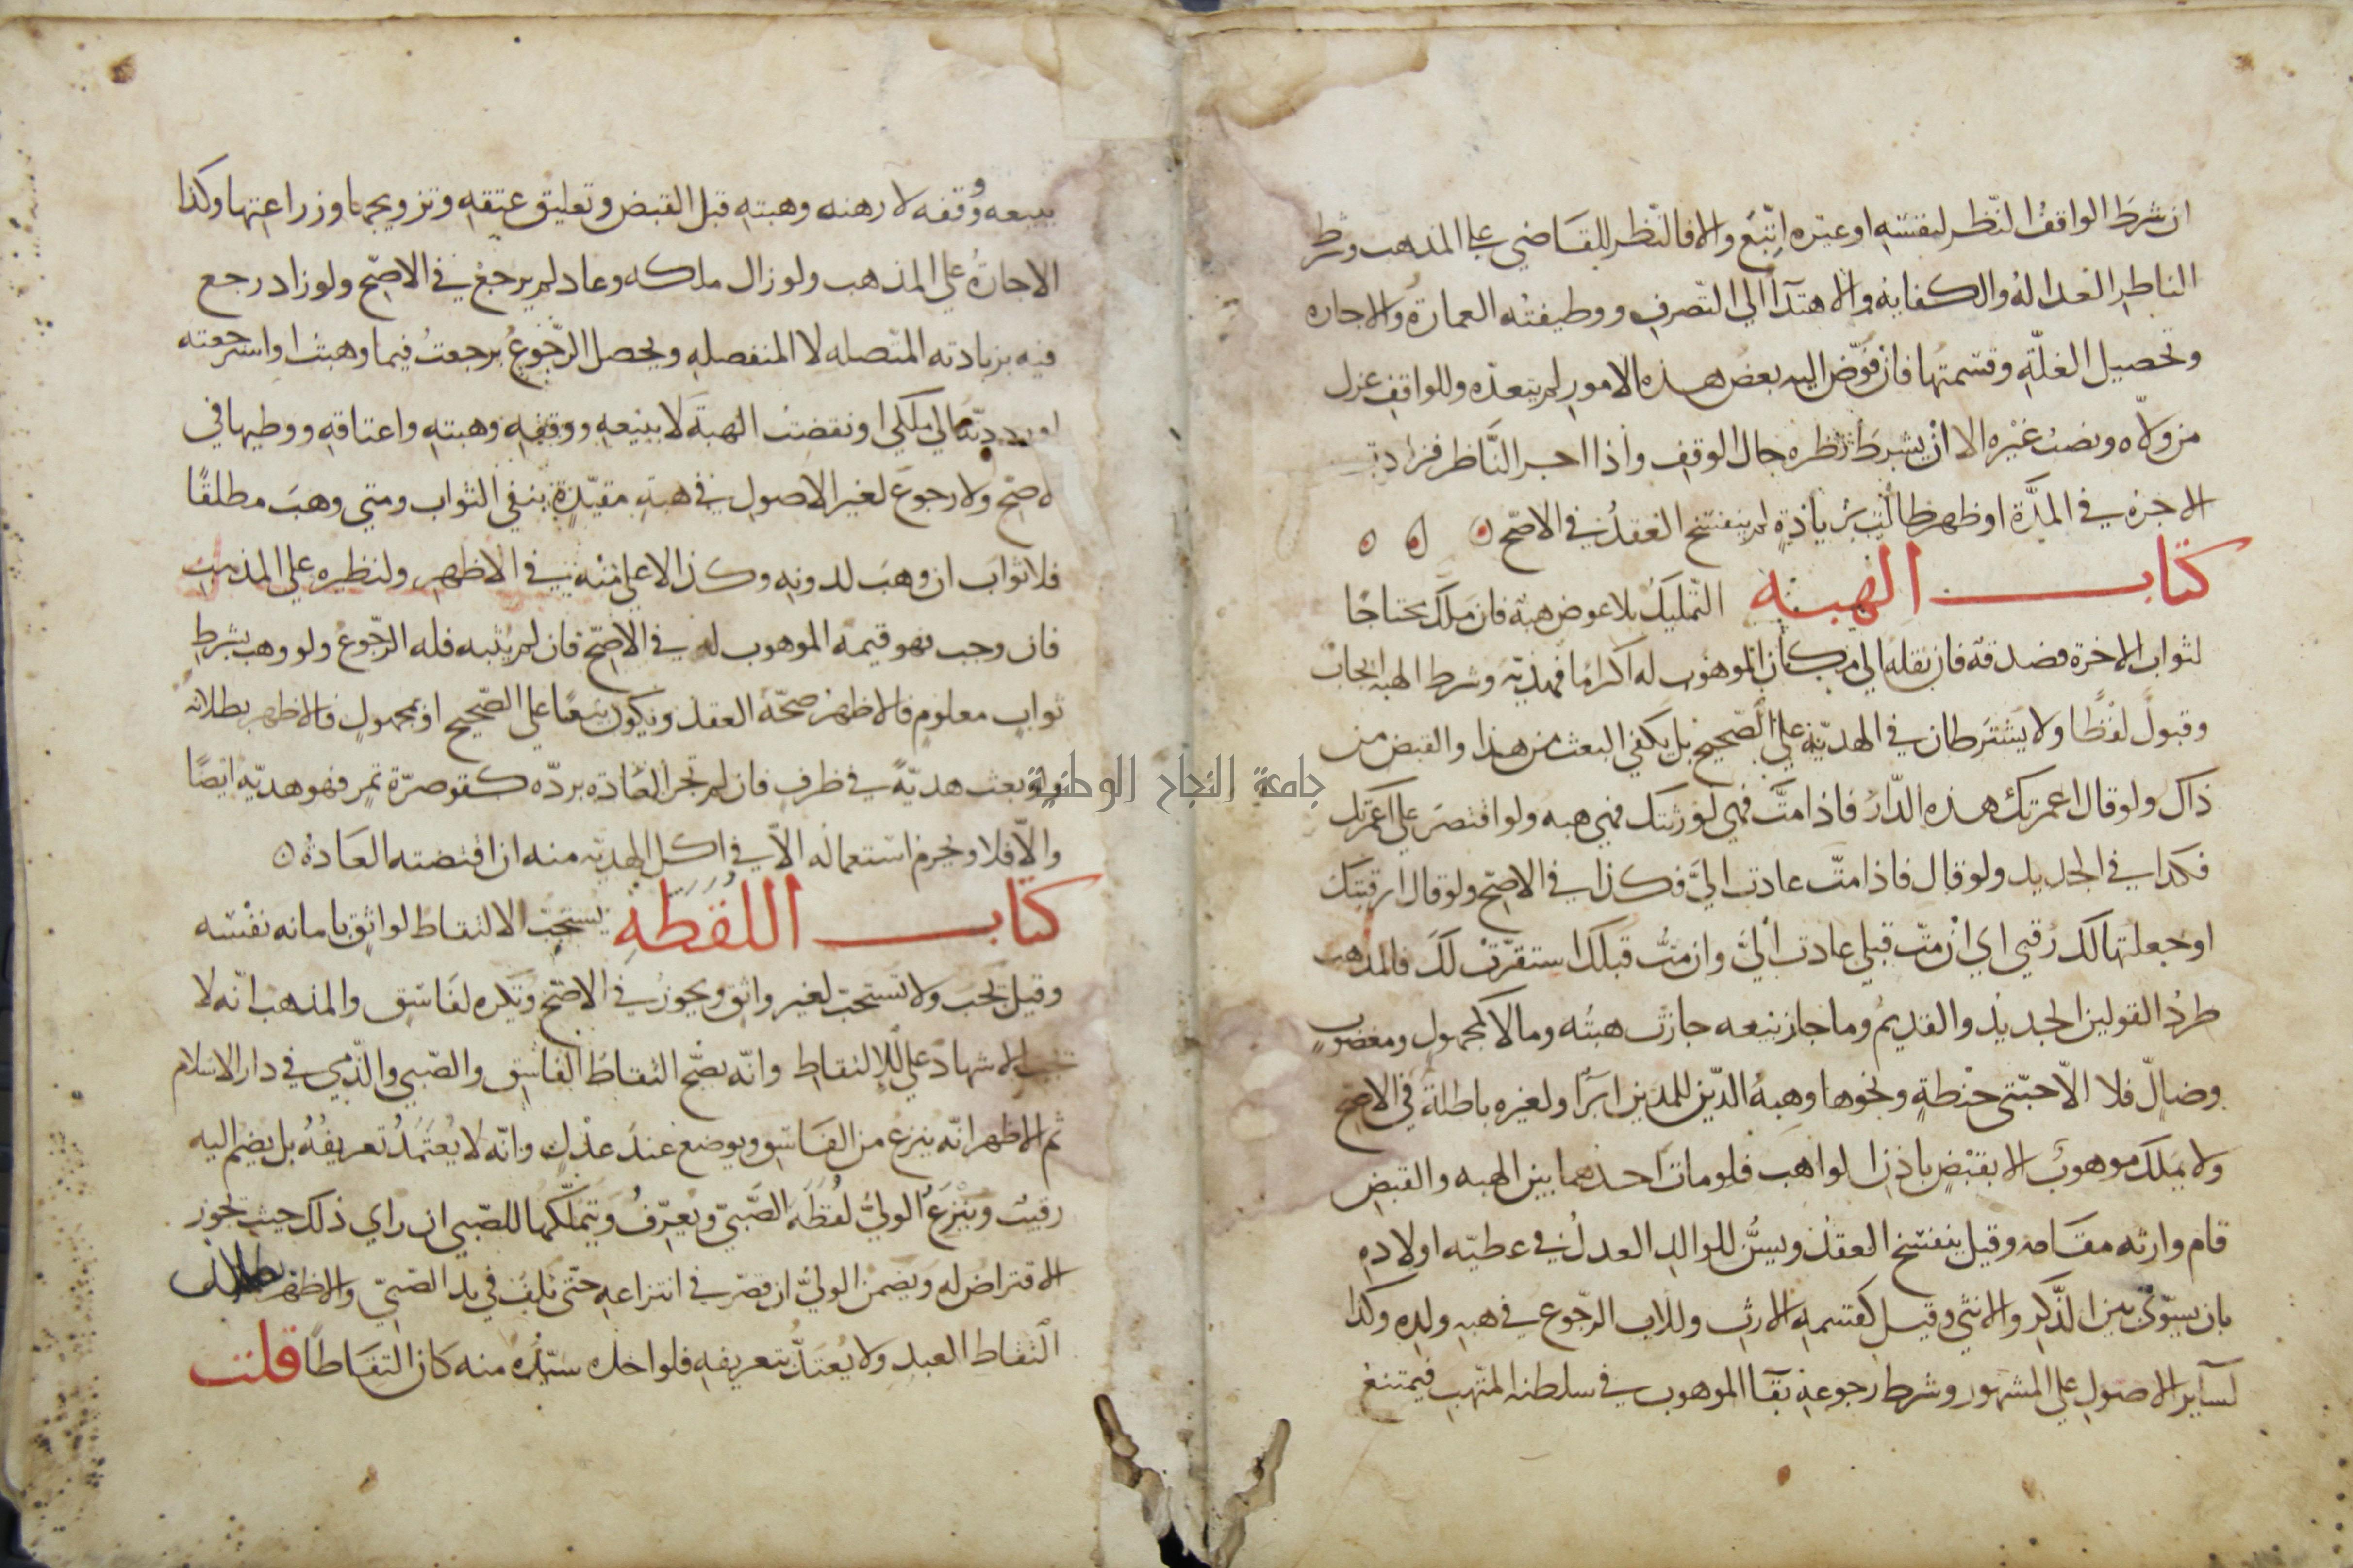 ان شرط الواقف النّظر لنفسه او غيره اتّبع والا فالنّظر للقاضي على المذهب وشرط
الناظر العدالة والكفاية والاهتدآ الى التّصرف ووظيفته العمارة والاجارة
وتحصيل الغلّة وقسمتها فان فوّض اليه بعض هذه الامور لم يتعدّه وللواقف عزل
من ولّاه ونصب غيره الا ان يشرط نظره حال الوقف واذا اجر النّاظر فزادت
الاجرة في المدّة او ظهر طالب بزيادة لم ينفسخ العقد في الاصّح
كتاب الهبة التّمليك بلا عوض هبة فان ملّك محتاجًا
لثواب الاخرة فصدقة فان نقله الى مكان الموهوب له اكرامًا فهديّة وشرط الهبه ايجاب
وقبول لفظًا ولا يشترطان في الهديّة على الصّحيح بل يكفي البعث من هذا والقبض من
ذاك ولو قال اعمرتك هذه الدّار فاذا متّ فهي لورثتك فهي هبه ولو اقتصر على اعمرتك
فكذا في الجديد ولو قال فاذا متّ عادت اليّ فكذا في الاصّح ولو قال ارقبتك
او جعلتها لك رقبي اي ان متّ قبلي عادت اليّ وان متُّ قبلك استقرّت لك فالمذهب
طرد القولين الجديد والقديم وما جاز بيعه جازت هبته وما لا كمجهول ومغصوب
وضالّ فلا الاّ حبّتى حنطة ونحوها وهبة الدّين للمدين ابرآ ولغيره باطلة في الاصّح
ولا يملك موهوب الا بقبض باذن الواهب فلو مات احدهما بين الهبه والقبض
قام وارثه مقامه وقيل ينفسخ العقد ويسنّ للوالد العدل في عطيّه اولاده
بان يسوّى بين الذّكر والانثى وقيل كقسمه الارث وللاب الرّجوع في هبه ولده وكذا
لسآير الاصول على المشهور وشرط رجوعه بقآ الموهوب في سلطنه المتّهب فيمتنع
ببيعه ووقفه لا رهنه وهبته قبل القبض وتعليق عتقه وتزويجها وزراعتها وكذا
الاجارة على المذهب ولو زال ملكه وعاد لم يرجع في الاصّح ولو زاد رجع
فيه بزيادته المتّصله لا المنفصله ويحصل الرّجوع برجعت فيما وهبت او استرجعته
او رددته الى ملكي او نقضت الهبة لا ببيعه ووقفه وهبته واعتاقه ووطيها في
لاصّح ولا رجوع لغير الاصول في هبه مقيّدة بنفي الثواب ومتى وهب مطلقًا
فلا ثواب ان وهب لدونه وكذا لاعلى منه في الاظهر ولنظيره على المذهب
فان وجب فهو قيمه الموهوب له في الاصّح فان لم يثبه فله الرّجوع ولو وهب بشرط
ثواب معلوم فالاظهر صحّة العقد ويكون بيعًا على الصّحيح او بمجهول فالاظهر بطلانه
ولو بعث هديّة في ظرف فان لم تجر العادة بردّه كقوصرّة تمر فهو هديّه ايضًا
والاّ فلا ويحرم استعماله الاّ في اكل الهديّه منه ان اقتضته العادة
كتاب اللقطة يستحبّ الالتقاط لواثق بامانه نفسه
وقيل يجب ولا يستحبّ لغير واثق ويجوز في الاصّح ويكره لفاسق والمذهب انّه لا
يجب الاشهاد على الالتقاط وانّه يصّح التقاط الفاسق والصّبي والذّمي في دار الاسلام
ثم الاظهر انّه ينزع من الفاسق ويوضع عند عدل وانّه لا يعتمد تعريفه بل يضم اليه
رقيب وينزع الوليّ لقطة الصّبيّ ويعرّف ويتملّكها للصّبي ان راى ذلك حيث يجوز
الاقتراض له ويضمن الوليّ ان قصر في انتزاعه حتّى تلف في يد الصّبيّ والاظهر بطلان
التقاط العبد ولا يعتدّ بتعريفه فلو اخذه سيّده منه كان التقاطًا قلت
جامعة النجاح الوطنية